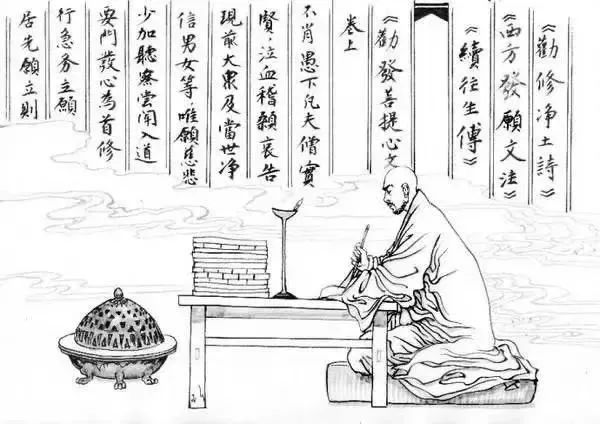 《勸修净土詩》
《西方發願文注》
《續往生傳》
《勸發菩提心文
卷上
不肖愚下凡夫僧實
賢，泣血稽顙哀告
現前大衆及當世净
信男女等，唯願慈悲
少加聽察嘗聞入道
要門發心為首修
行急务立願
居先願立則